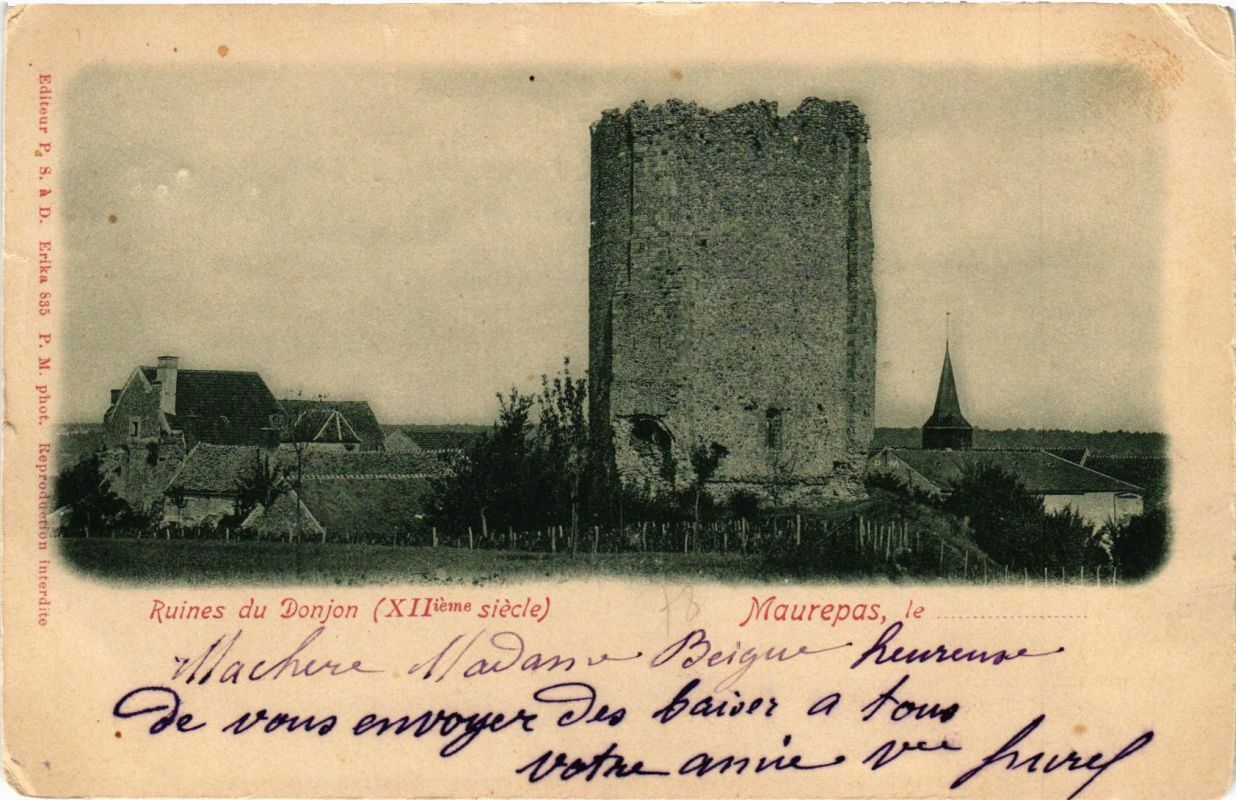 Editeur P. S. à D. Erika 835 P. M. phot. Reproduction interdite
Ruines du Donjon (XIIième siècle)
Maurepas, le
78
Machere Madame Beigue heureuse
de vous envoyer des baiser a tous
votre amie vve